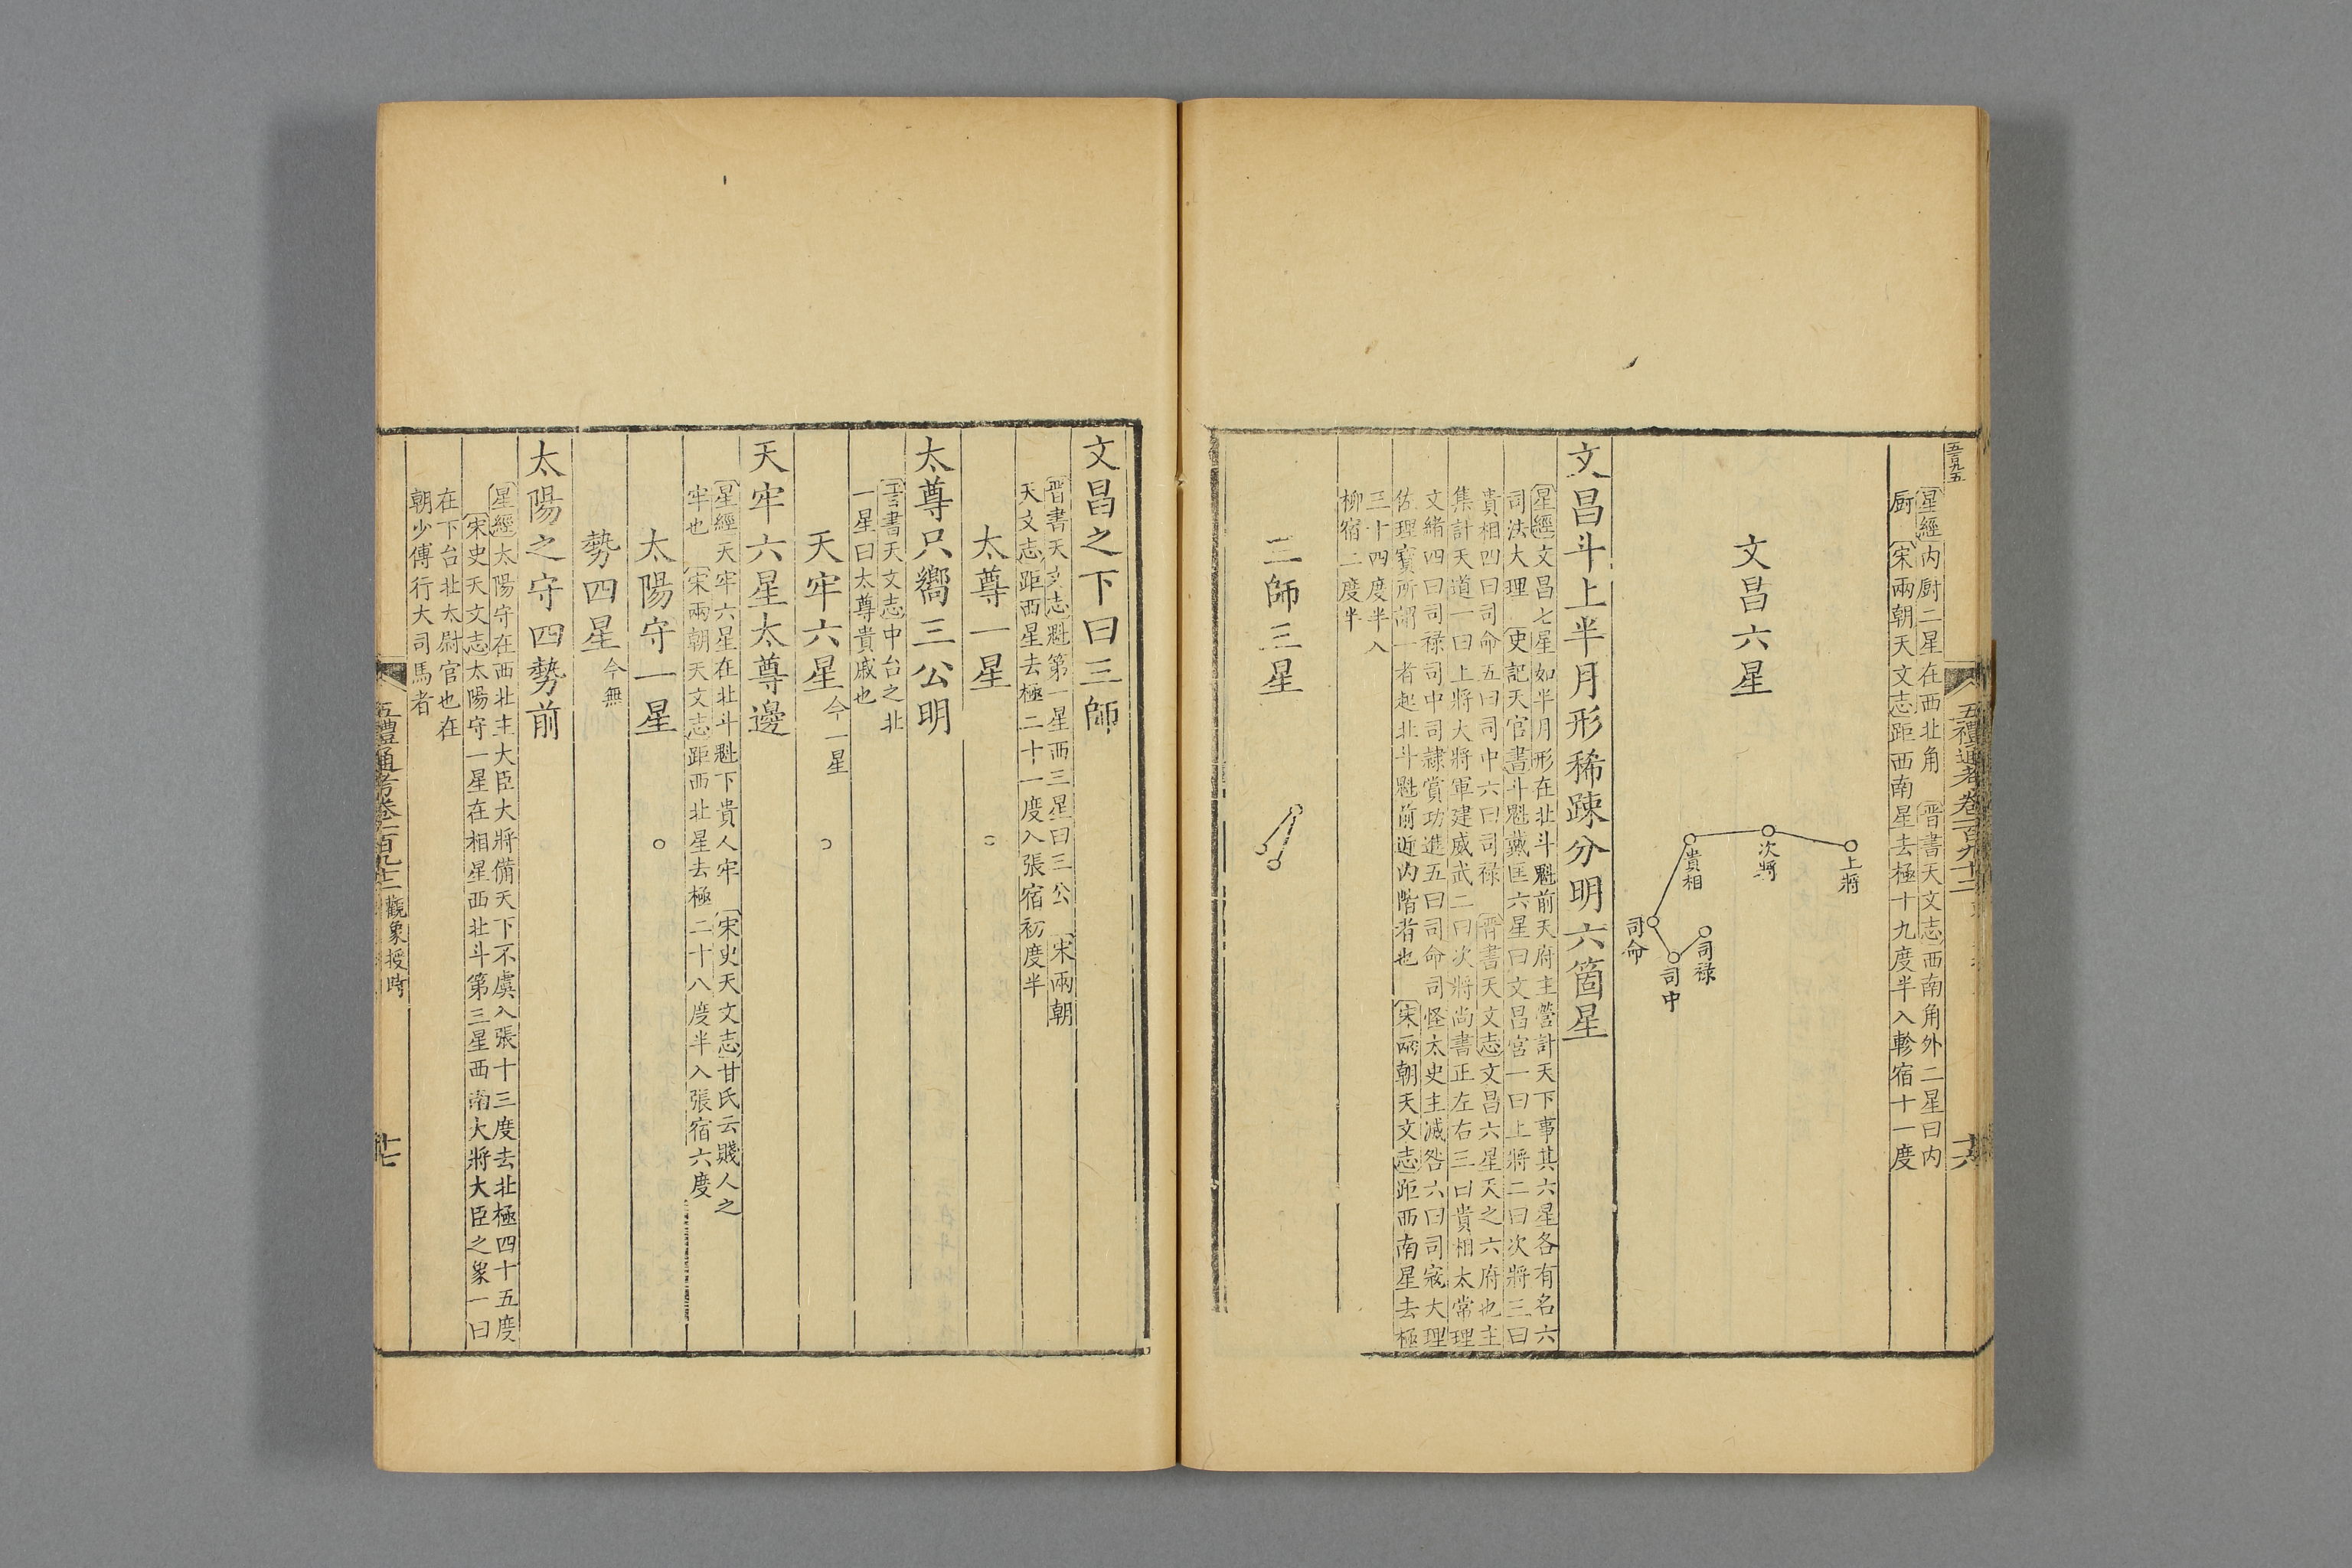 五百九五
五禮通考卷一百九十二
十六
星經内厨二星在西北角　晋書天文志西南角外二星曰内
厨　宋兩朝天文志距西南星去極十九度半入軫宿十一度
文昌六星
上將
次將
貴相
司命
司中
司禄
文昌斗上半月形稀踈分明六箇星
星經文昌七星如半月形在北斗魁前天府主營計天下事其六星各有名六
司法大理　史記天官書斗魁戴匡六星曰文昌宫一曰上將二曰次將三曰
貴相四曰司命五曰司中六曰司禄　晋書天文志文昌六星天之六府也主
集計天道一曰上將大將軍建威武二曰次將尚書正左右三曰貴相太常理
文緒四曰司禄司中司隸賞功進五曰司命司怪太史主滅咎六曰司寇大理
佐理寳所謂一者起北斗魁前近内階者也　宋兩朝天文志距西南星去極
三十四度半入
柳宿二度半
三師三星
文昌之下曰三師
晋書天文志魁第一星西三星曰三公　宋兩朝
天文志距西星去極二十一度入張宿初度半
太尊一星
太尊只嚮三公明
晋書天文志中台之北
一星曰太尊貴戚也
天牢六星今一星
天牢六星太尊邊
星經天牢六星在北斗魁下貴人牢　宋史天文志甘氏云賤人之
牢也　宋兩朝天文志距西北星去極二十八度半入張宿六度
太陽守一星
勢四星今無
太陽之守四勢前
星經太陽守在西北主大臣大將備天下不虞入張十三度去北極四十五度
宋史天文志太陽守一星在相星西北斗第三星西南大將大臣之象一曰
在下台北太尉官也在
朝少傅行大司馬者
五禮通考卷一百九十二　觀象授時
十七